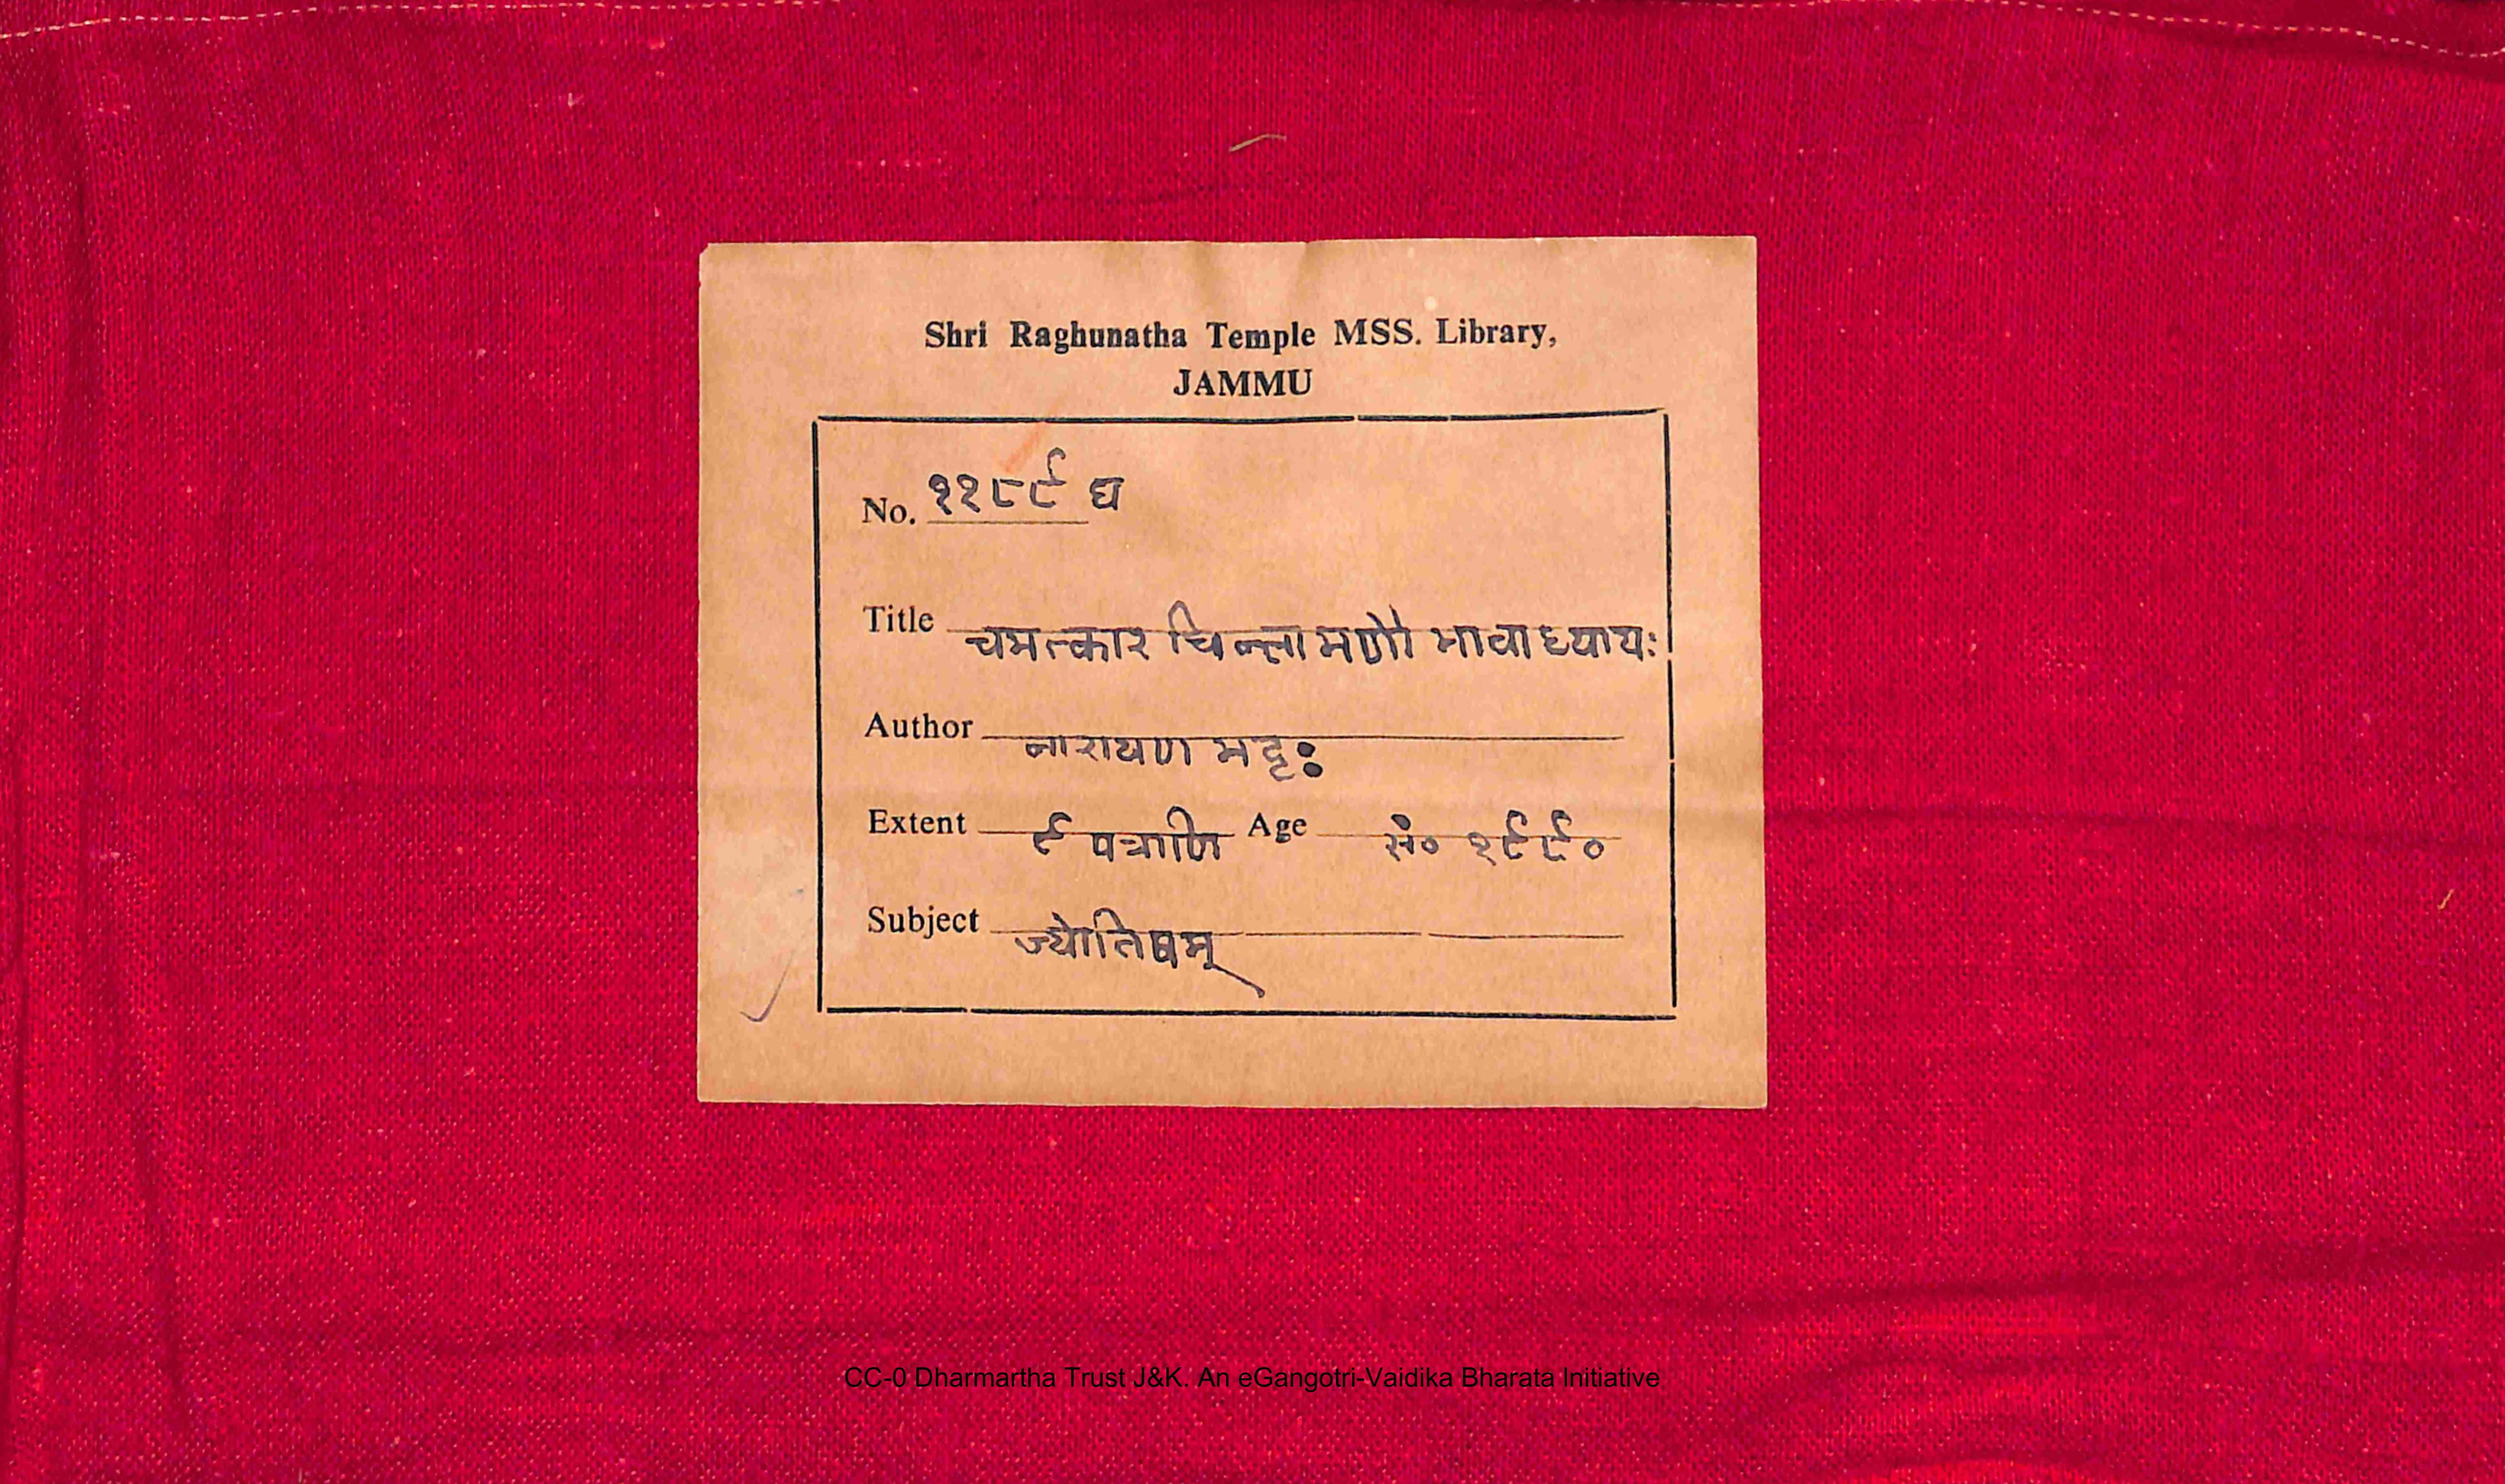 Shri Raghunatha Temple MSS. Library,
JAMMU
No. ११८९ घ
Title चमत्कार चिन्तामणौ भावाध्यायः
Author नारायण भट्टः
Extent ९ पत्राणि Age सं० १९९०
Subject ज्योतिषम्
CC-0 Dharmartha Trust J&K. An eGangotri-Vaidika Bharata Initiative